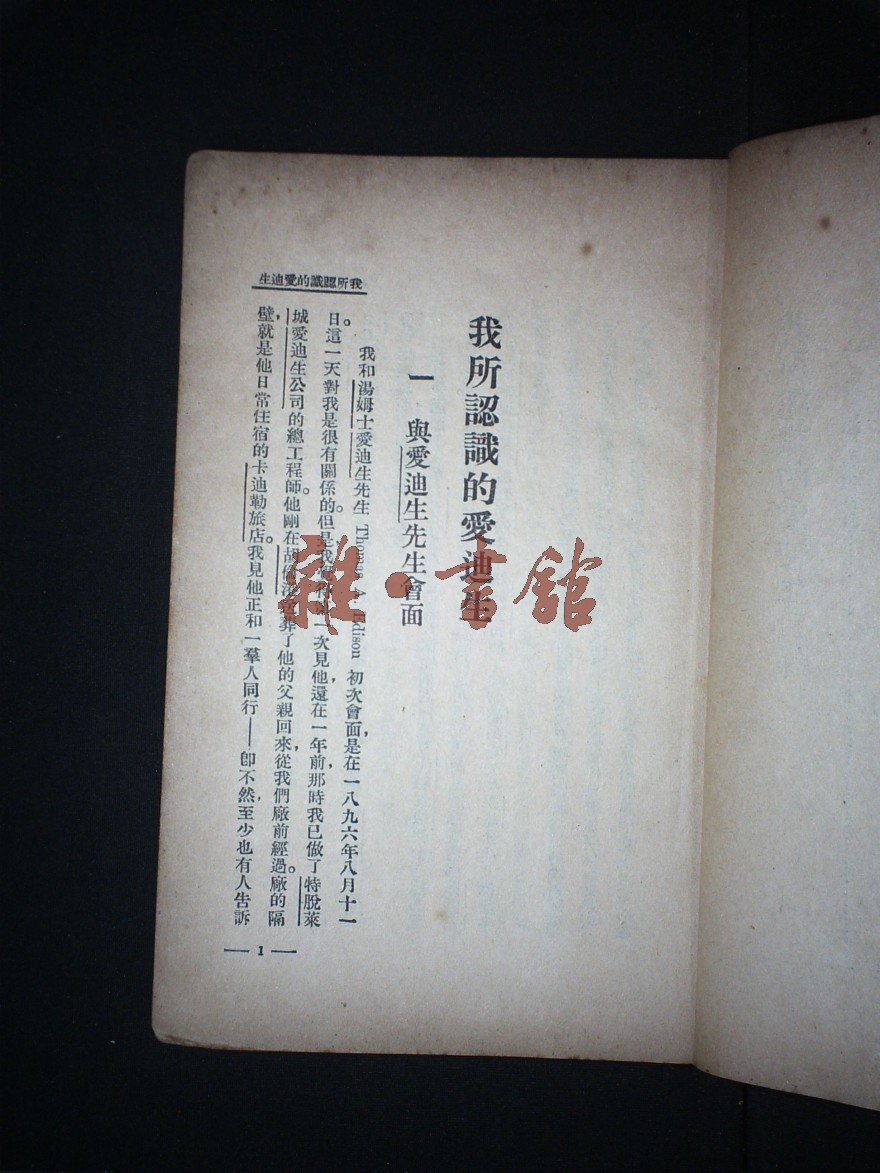 我所認識的愛迪生
我所認識的愛迪生
一 與愛迪生先生會面
我和湯姆士愛迪生先生 Thomas A. Edison 初次會面，是在一八九六年八月十一
日。這一天對我是很有關係的。但是我 一次見他，還在一年前，那時我已做了特脫萊
城愛迪生公司的總工程師。他剛在胡 葬了他的父親回來，從我們廠前經過。廠的隔
壁，就是他日常住宿的卡迪勒旅店。我見他正和一羣人同行——卽不然，至少也有人告訴
— 1 —
雜·書館